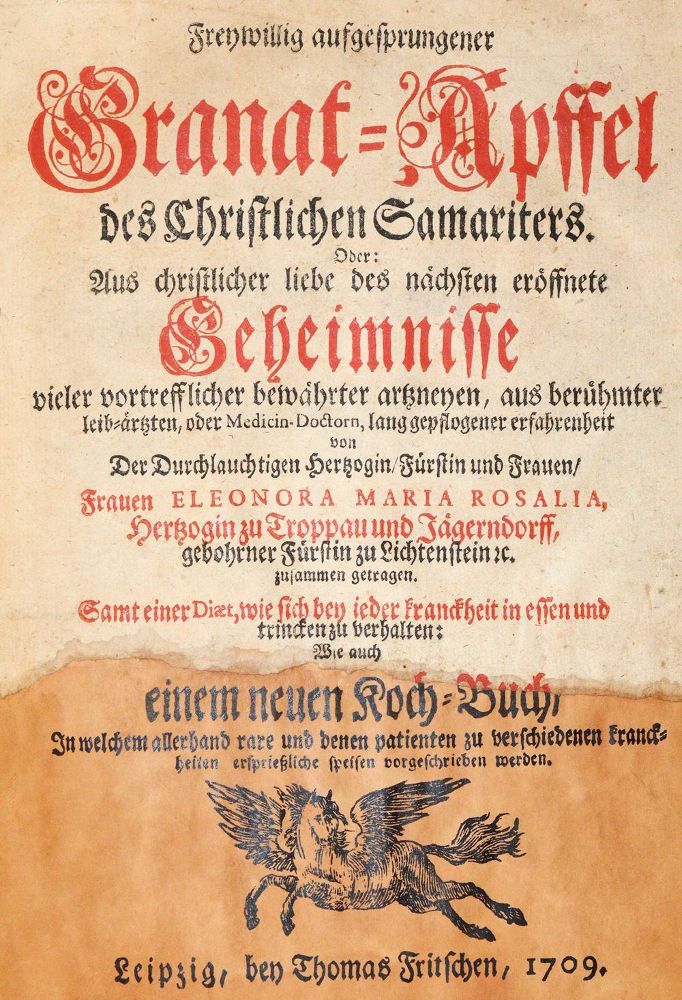 Freywillig aufgesprungener
Granat-Apffel
des Christlichen Samariters.
Oder:
Aus christlicher liebe des nächsten eröffnete
Geheimnisse
vieler vortrefflicher bewährter artzneyen, aus berühmter
leib-ärtzten, oder Medicin-Doctorn, lang gepflogener erfahrenheit
von
Der Durchlauchtigen Hertzogin/Fürstin und Frauen/
Frauen ELEONORA MARIA ROSALIA,
Hertzogin zu Troppau und Jägerndorff,
gebohrner Fürstin zu Lichtenstein ꝛc.
zusammen getragen.
Samt einer Diæt, wie sich bey ieder kranckheit in essen und
trincken zu verhalten:
Wie auch
einem neuen Koch-Buch/
In welchem allerhand rare und denen patienten zu verschiedenen kranck-
heiten ersprießliche speisen vorgeschrieben werden.
Leipzig, bey Thomas Fritschen, 1709.